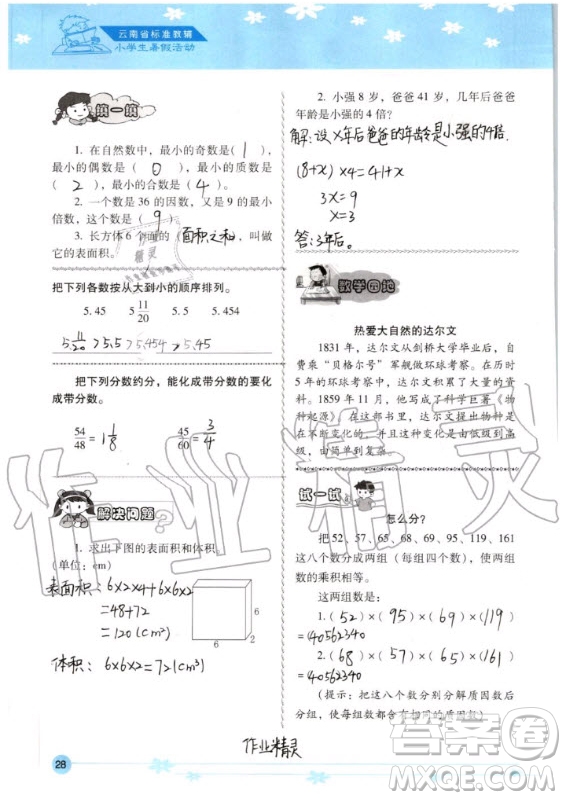 云南省标准教辅
小学生暑假活动
填一填
1. 在自然数中，最小的奇数是（ 1 ），
最小的偶数是（ 0 ），最小的质数是
（ 2 ），最小的合数是（ 4 ）。
2. 一个数是 36 的因数，又是 9 的最小
倍数，这个数是（ 9 ）。
3. 长方体 6 个面的（面积之和），叫做
它的表面积。
把下列各数按从大到小的顺序排列。
5.45 5 11/20 5.5 5.454
5 11/20 > 5.5 > 5.454 > 5.45
把下列分数约分，能化成带分数的要化
成带分数。
54/48 = 1 1/8 45/60 = 3/4
解决问题
1. 求出下图的表面积和体积。
(单位：cm)
表面积：6×2×4+6×6×2
=48+72
=120(cm²)
6
6
2
体积：6×6×2=72(cm³)
2. 小强 8 岁，爸爸 41 岁，几年后爸爸
年龄是小强的 4 倍？
解：设x年后爸爸的年龄是小强的4倍.
(8+x)×4=41+x
3x=9
x=3
答：3年后。
数学园地
热爱大自然的达尔文
1831 年，达尔文从剑桥大学毕业后，自
费乘“贝格尔号”军舰做环球考察。在历时
5 年的环球考察中，达尔文积累了大量的资
料。1859 年 11 月，他写成了科学巨著《物种
起源》。在这部书里，达尔文提出“物种是
在不断变化的，并且是由低级到高级、
由简单到复杂。”
试一试
怎么分？
把 52、57、65、68、69、95、119、161
这八个数分成两组（每组四个数），使两组
数的乘积相等。
这两组数是：
1.（ 52 ）×（ 95 ）×（ 69 ）×（ 119 ）
=40562340
2.（ 68 ）×（ 57 ）×（ 65 ）×（ 161 ）
=40562340
（提示：把这八个数分别分解质因数后
分组，使每组都含有相同的质因数）
作业精灵
28
作业精灵
答案圈